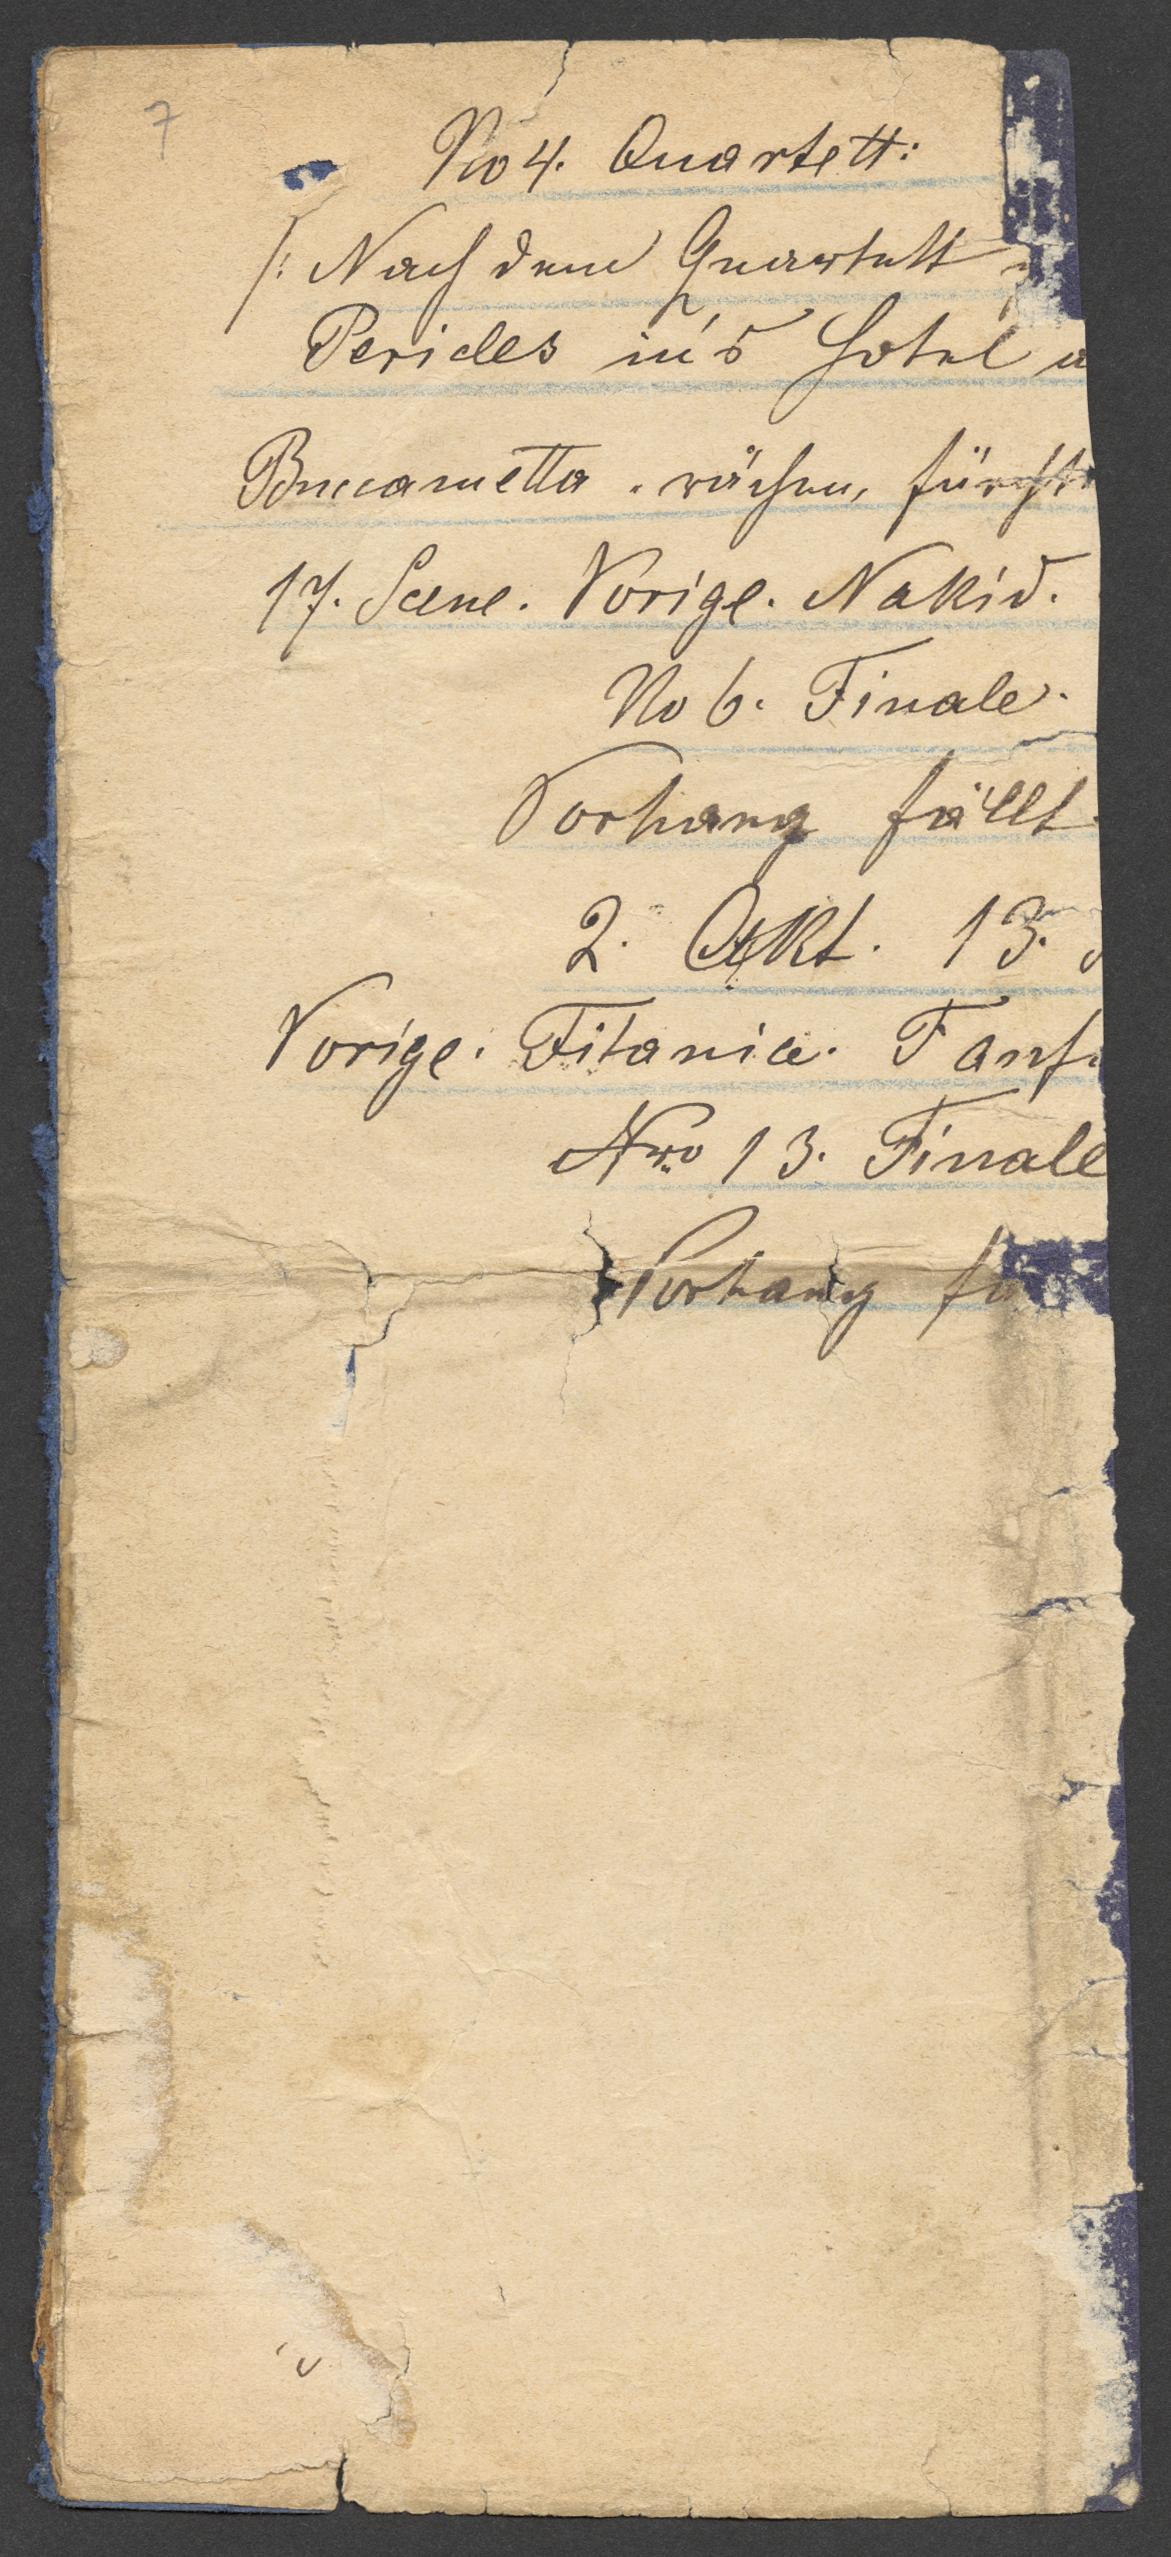 7
No 4. Quartett:
/: Nach dem Quartett
Pericles in's Hotel
Buccametta. rächen, fürcht
17. Scene. Vorige. Nakid.
No 6. Finale.
Vorhang fällt.
2. Akt. 13.
Vorige. Titania. Fanf
Nro 13. Finale
Vorhang fä